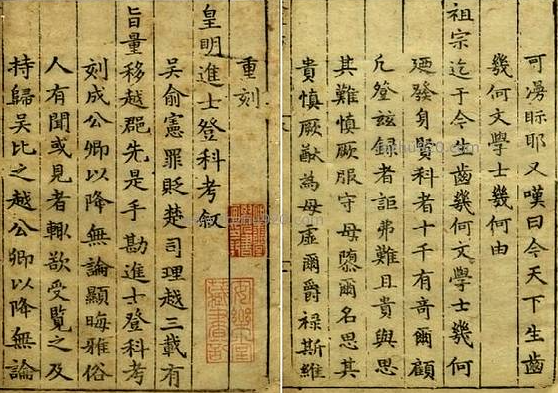 可漫眎耶又嘆曰今天下生齒
幾何文學士幾何由
祖宗迄于今生齒幾何文學士幾何
廼發身賢科者十千有奇爾顧
凡登玆録者詎弗難且貴與思
其難慎厥服守毋墮爾名思其
貴慎厥猷為毋虛爾爵祿斯維
重刻
皇明進士登科考敘
吳俞憲罪貶楚司理越三載有
旨量移越郡先是手勘進士登科考
刻成公卿以降無論顯晦雅俗
人有聞或見者輒欲受覽之及
持歸吳比之越公卿以降無論